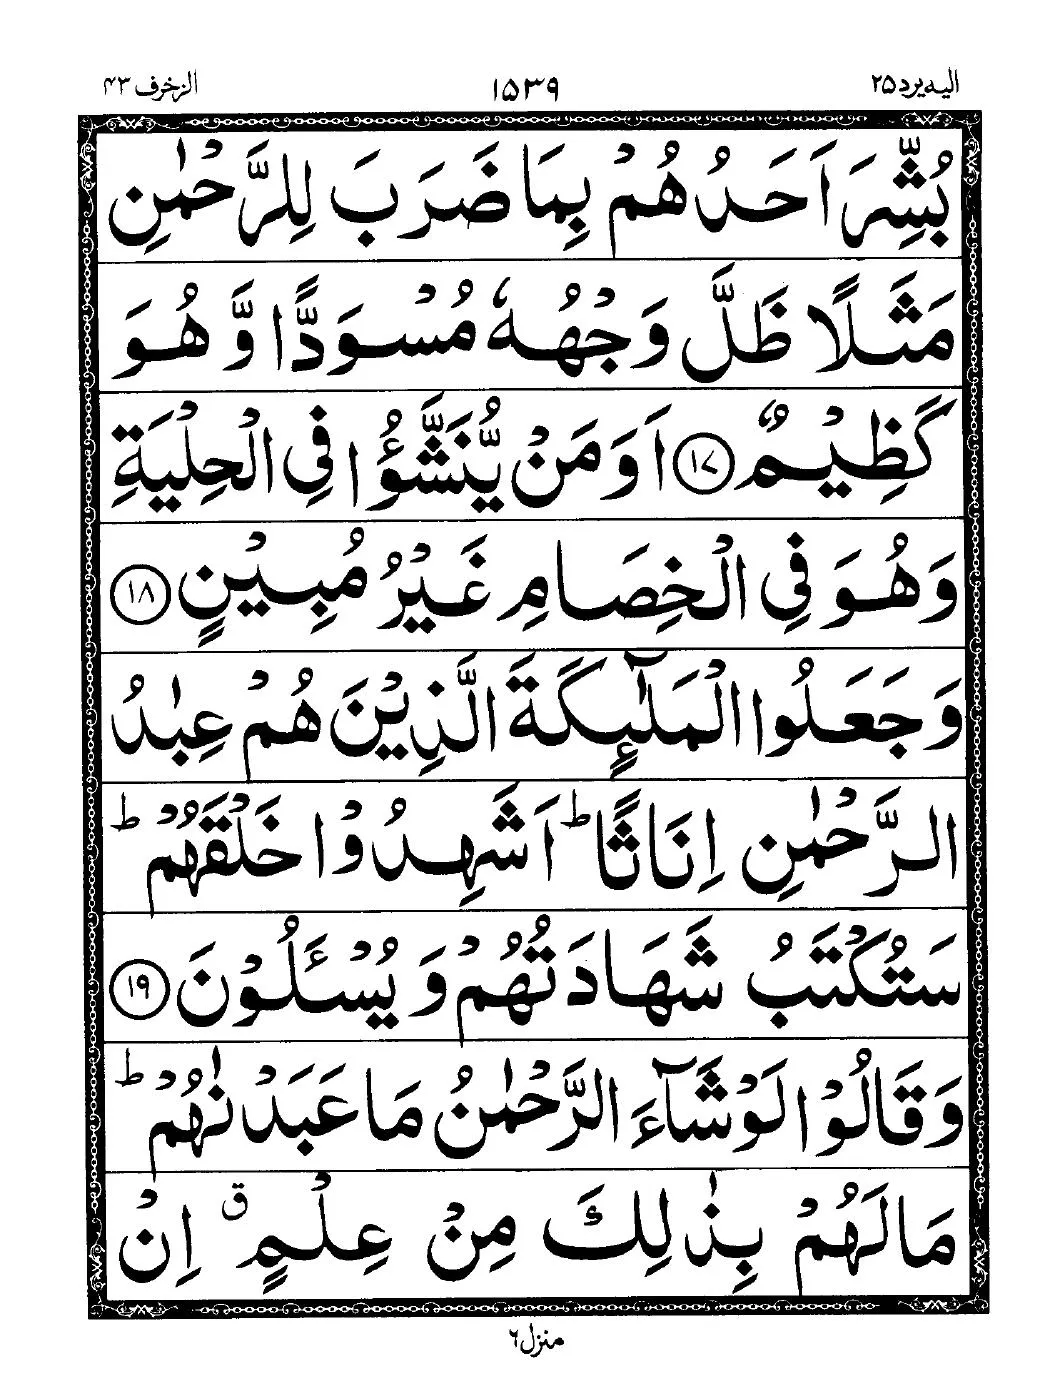 الیه یرد ۲۵ ۱۵۳۹ الزخرف ۴۳
بُشِّرَ اَحَدُهُمْ بِمَا ضَرَبَ لِلرَّحْمٰنِ
مَثَلًا ظَلَّ وَجْهُهٗ مُسْوَدًّا وَّهُوَ
كَظِيْمٌ ۝۱۷ اَوَمَنْ يُّنَشَّؤُا فِي الْحِلْيَةِ
وَهُوَ فِي الْخِصَامِ غَيْرُ مُبِيْنٍ ۝۱۸
وَجَعَلُوا الْمَلٰٓئِكَةَ الَّذِيْنَ هُمْ عِبٰدُ
الرَّحْمٰنِ اِنَاثًا ؕ اَشَهِدُوْا خَلْقَهُمْ ؕ
سَتُكْتَبُ شَهَادَتُهُمْ وَيُسْـَٔلُوْنَ ۝۱۹
وَقَالُوْا لَوْ شَآءَ الرَّحْمٰنُ مَا عَبَدْنٰهُمْ ؕ
مَا لَهُمْ بِذٰلِكَ مِنْ عِلْمٍ ۗ اِنْ
منزل ۶